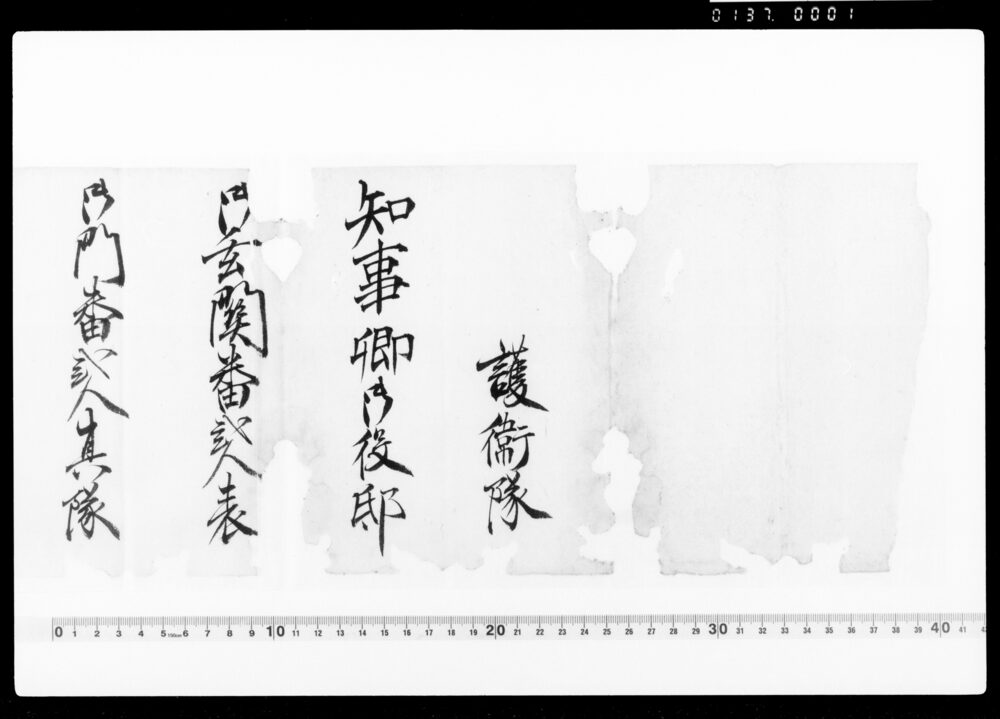 0137. 0001
護衛隊
知事卿御役邸
御玄関番弐人表
御門番弐人真隊
0 1 2 3 4 5 150cm 6 7 8 9 10 11 12 13 14 15 16 17 18 19 20 21 22 23 24 25 26 27 28 29 30 31 32 33 34 35 36 37 38 39 40 41 42